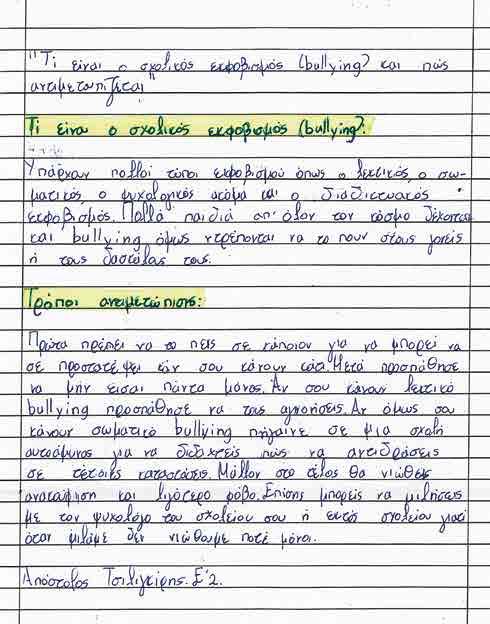 "Τι είναι ο σχολικός εκφοβισμός (bullying? και πώς
αντιμετωπίζεται"
Τι είναι ο σχολικός εκφοβισμός (bullying?:
Υπάρχουν πολλοί τύποι εκφοβισμού όπως ο λεκτικός, ο σω-
ματικός, ο ψυχολογικός ακόμα και ο διαδικτυακός
εκφοβισμός. Πολλά παιδιά απ' όλον τον κόσμο δέχονται
και bullying όμως ντρέπονται να το πουν στους γονείς
ή τους δασκάλους τους.
Τρόποι αντιμετώπισης:
Πρώτα πρέπει να το πεις σε κάποιον για να μπορεί να
σε προστατέψει εάν σου κάνουν κάτι. Μετά προσπάθησε
να μην είσαι πάντα μόνος. Αν σου κάνουν λεκτικό
bullying προσπάθησε να τους αγνοήσεις. Αν όμως σου
κάνουν σωματικό bullying πήγαινε σε μια σχολή
αυτοάμυνας για να διδαχτείς πώς να αντιδράσεις
σε τέτοιες καταστάσεις. Μάλλον στο τέλος θα νιώθεις
ανακούφιση και λιγότερο φόβο. Επίσης μπορείς να μιλήσεις
με τον ψυχολόγο του σχολείου σου ή εκτός σχολείου γιατί
όταν μιλάμε δεν νιώθουμε ποτέ μόνοι.
Απόστολος Τσιλιγκίρης. Ε'2.